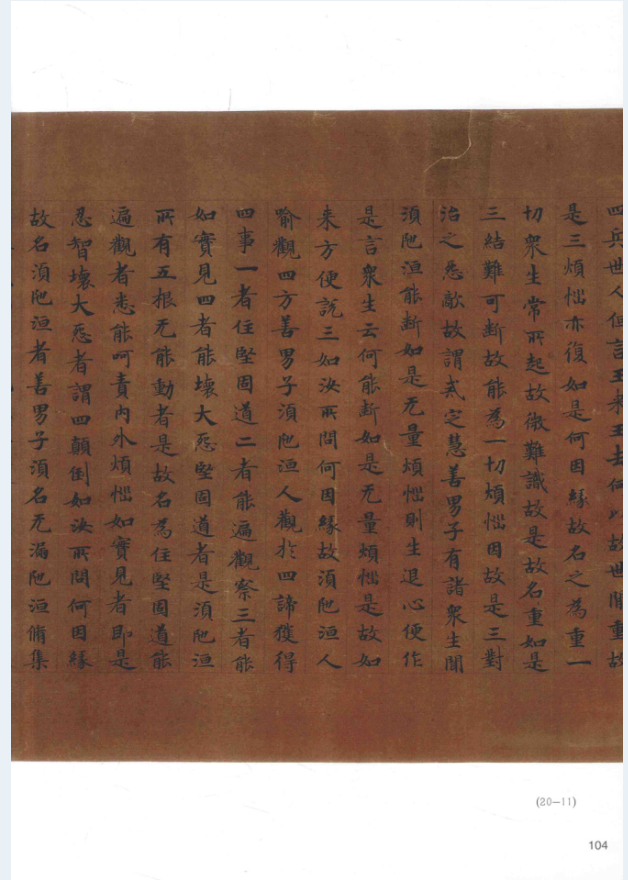 四兵世人但言王来王去何以故世間重故
是三煩惱亦復如是何因緣故名之為重一
切衆生常所起故微難識故是故名重如是
三結難可断故能為一切煩惱因故是三對
治之惡敵故謂戒定慧善男子有諸衆生聞
湏陁洹能断如是无量煩惱則生退心便作
是言衆生云何能断如是无量煩惱是故如
来方便說三如汝所問何因緣故湏陁洹人
喻觀四方善男子湏陁洹人觀於四諦獲得
四事一者住堅固道二者能遍觀察三者能
如實見四者能壞大惡堅固道者是湏陁洹
所有五根无能動者是故名為住堅固道能
遍觀者悉能呵責内外煩惱如實見者即是
忍智壞大惡者謂四顛倒如汝所問何因緣
故名湏陁洹者善男子湏名无漏陁洹脩集
(20—11)
104